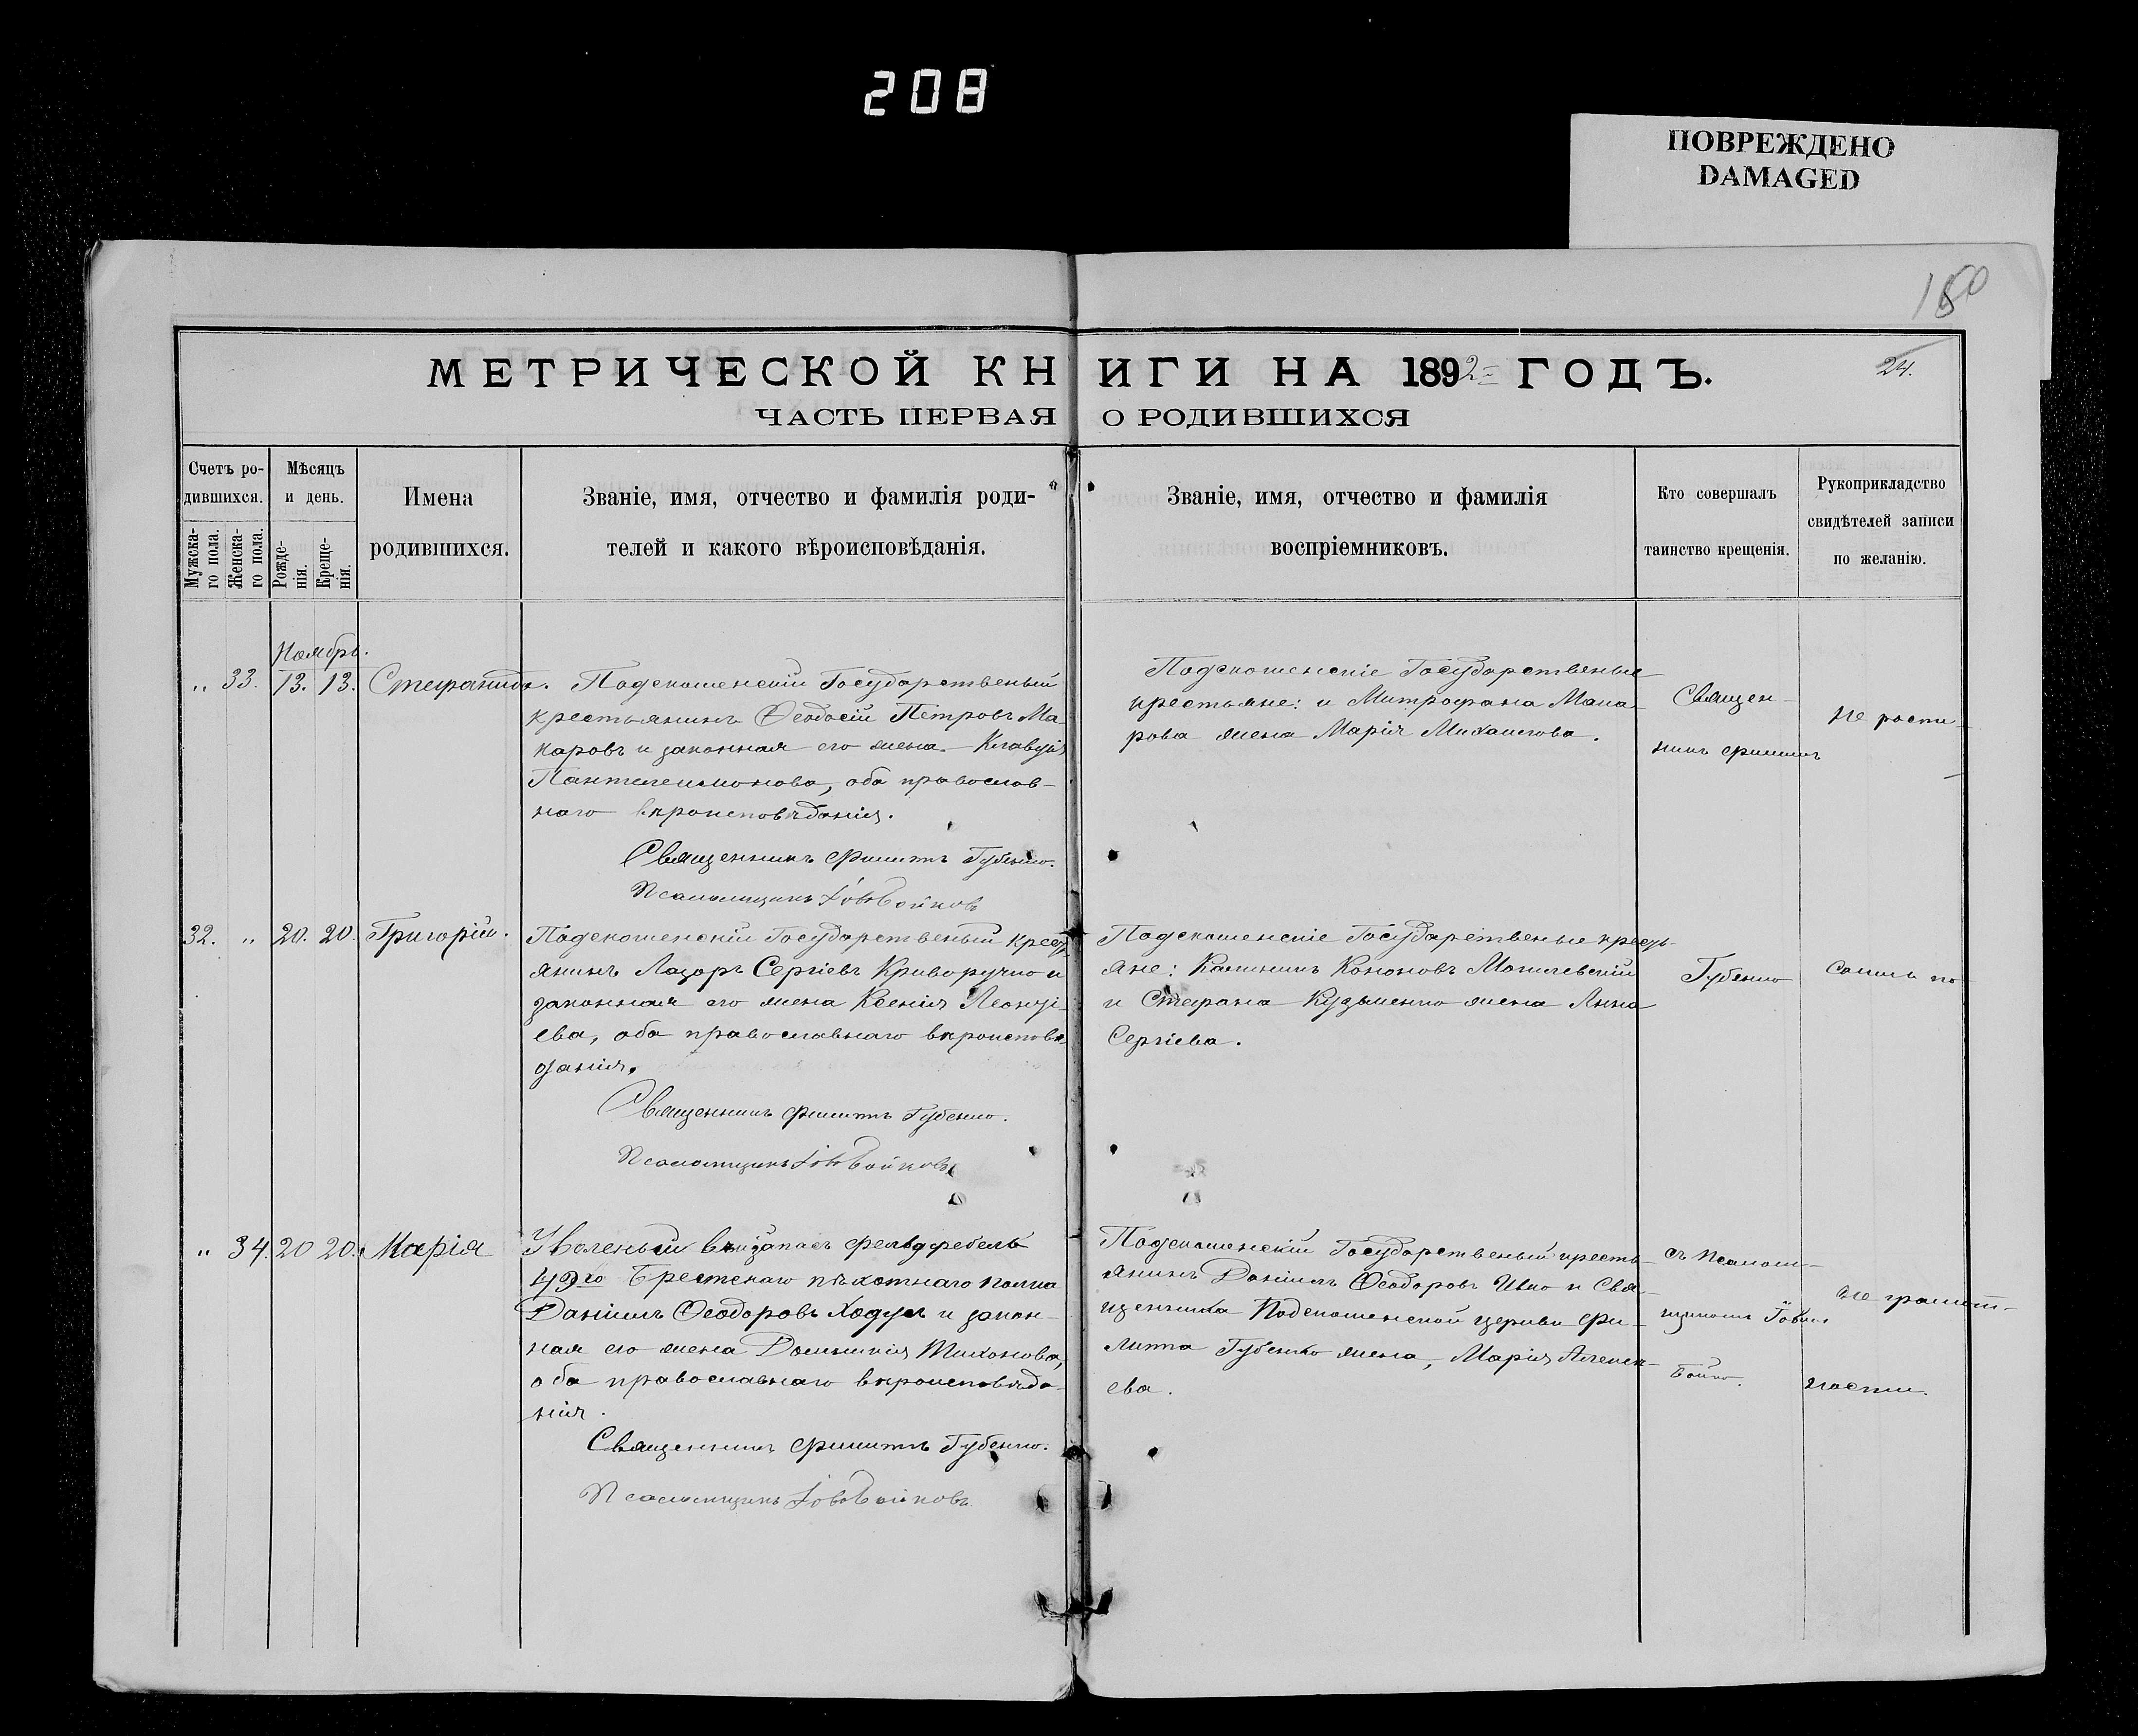 208
ПОВРЕЖДЕНО
DAMAGED
180
МЕТРИЧЕСКОЙ КНИГИ НА 1892 ГОДЪ.
24.
ЧАСТЬ ПЕРВАЯ О РОДИВШИХСЯ
Счетъ ро-
дившихся.
Мужска-
го пола.
Женска-
го пола.
Мѣсяцъ
и день.
Рожде-
нія.
Креще-
нія.
Имена
родившихся.
Званіе, имя, отчество и фамилія роди-
телей и какого вѣроисповѣданія.
Званіе, имя, отчество и фамилія
воспріемниковъ.
Кто совершалъ
таинство крещенія.
Рукоприкладство
свидѣтелей записи
по желанію.
Ноябрь.
„ 33. 13. 13. Стефанида.
Подскошенскій Государственый
крестьянинъ Ѳеодосій Петровъ Ма-
каровъ и законная его жена Клавдія
Пантелеимонова, оба православ-
наго вѣроисповѣданія.
Священникъ Филиппъ Губенко.
Псаломщикъ Іовъ Бойковъ
Подскошенскіе Государственые
крестьяне: и Митрофана Мака-
рова жена Марія Михаилова.
Священ-
никъ Филиппъ
32. „ 20. 20. Григорій.
Подскошенскій Государственый крест-
янинъ Лазарь Сергіевъ Криворучко и
законная его жена Ксенія Леонті-
ева, оба православнаго вѣроисповѣ-
данія.
Священникъ Филиппъ Губенко.
Псаломщикъ Іовъ Бойковъ
Подскошенскіе Государственые кресть-
яне: Калинникъ Кононовъ Могилевскій
и Стефана Кузьменко жена Анна
Сергіева.
Губенко
„ 34. 20 20. Марія
Уволеный въ запасъ фельдфебель
49го Брестскаго пѣхотнаго полка
Даніилъ Ѳеодоровъ Ходус и закон-
ная его жена Домникія Тихонова,
оба православнаго вѣроисповѣда-
нія.
Священникъ Филиппъ Губенко.
Псаломщикъ Іовъ Бойковъ
Подскошенскій Государственый кресть-
янинъ Даніилъ Ѳеодоровъ и Свя-
щенника Подскошенской церкви Фи-
липпа Губенко жена, Марія Алексі-
ева.
съ псалом-
щикомъ Іовомъ
Бойко.
не грамот-
ности.